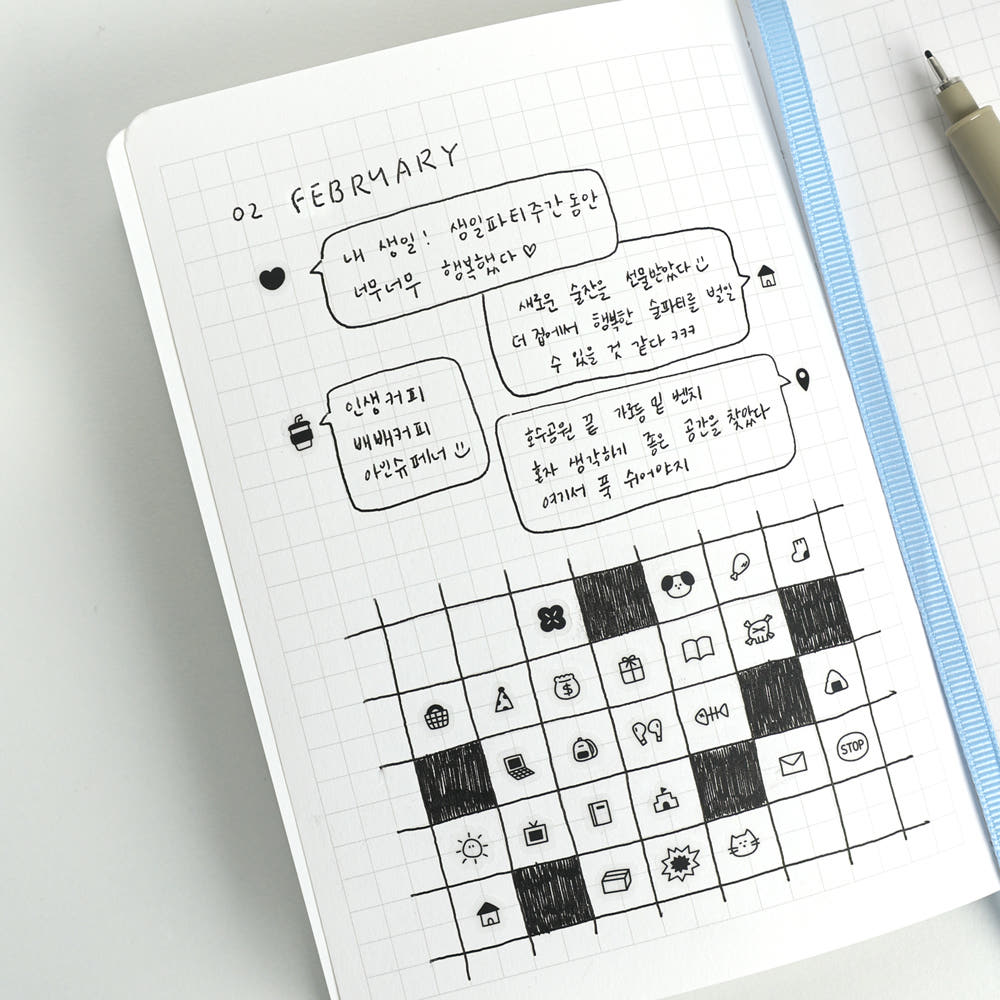 02 FEBRUARY
내 생일! 생일파티주간 동안
너무너무 행복했다♡
새로운 술잔을 선물받았다
더 집에서 행복한 술파티를 벌일
수 있을 것 같다 ㅋㅋㅋ
인생커피
배배커피
아인슈페너
호수공원 끝 가로등 밑 벤치
혼자 생각하기 좋은 공간을 찾았다
여기서 푹 쉬어야지
$
STOP